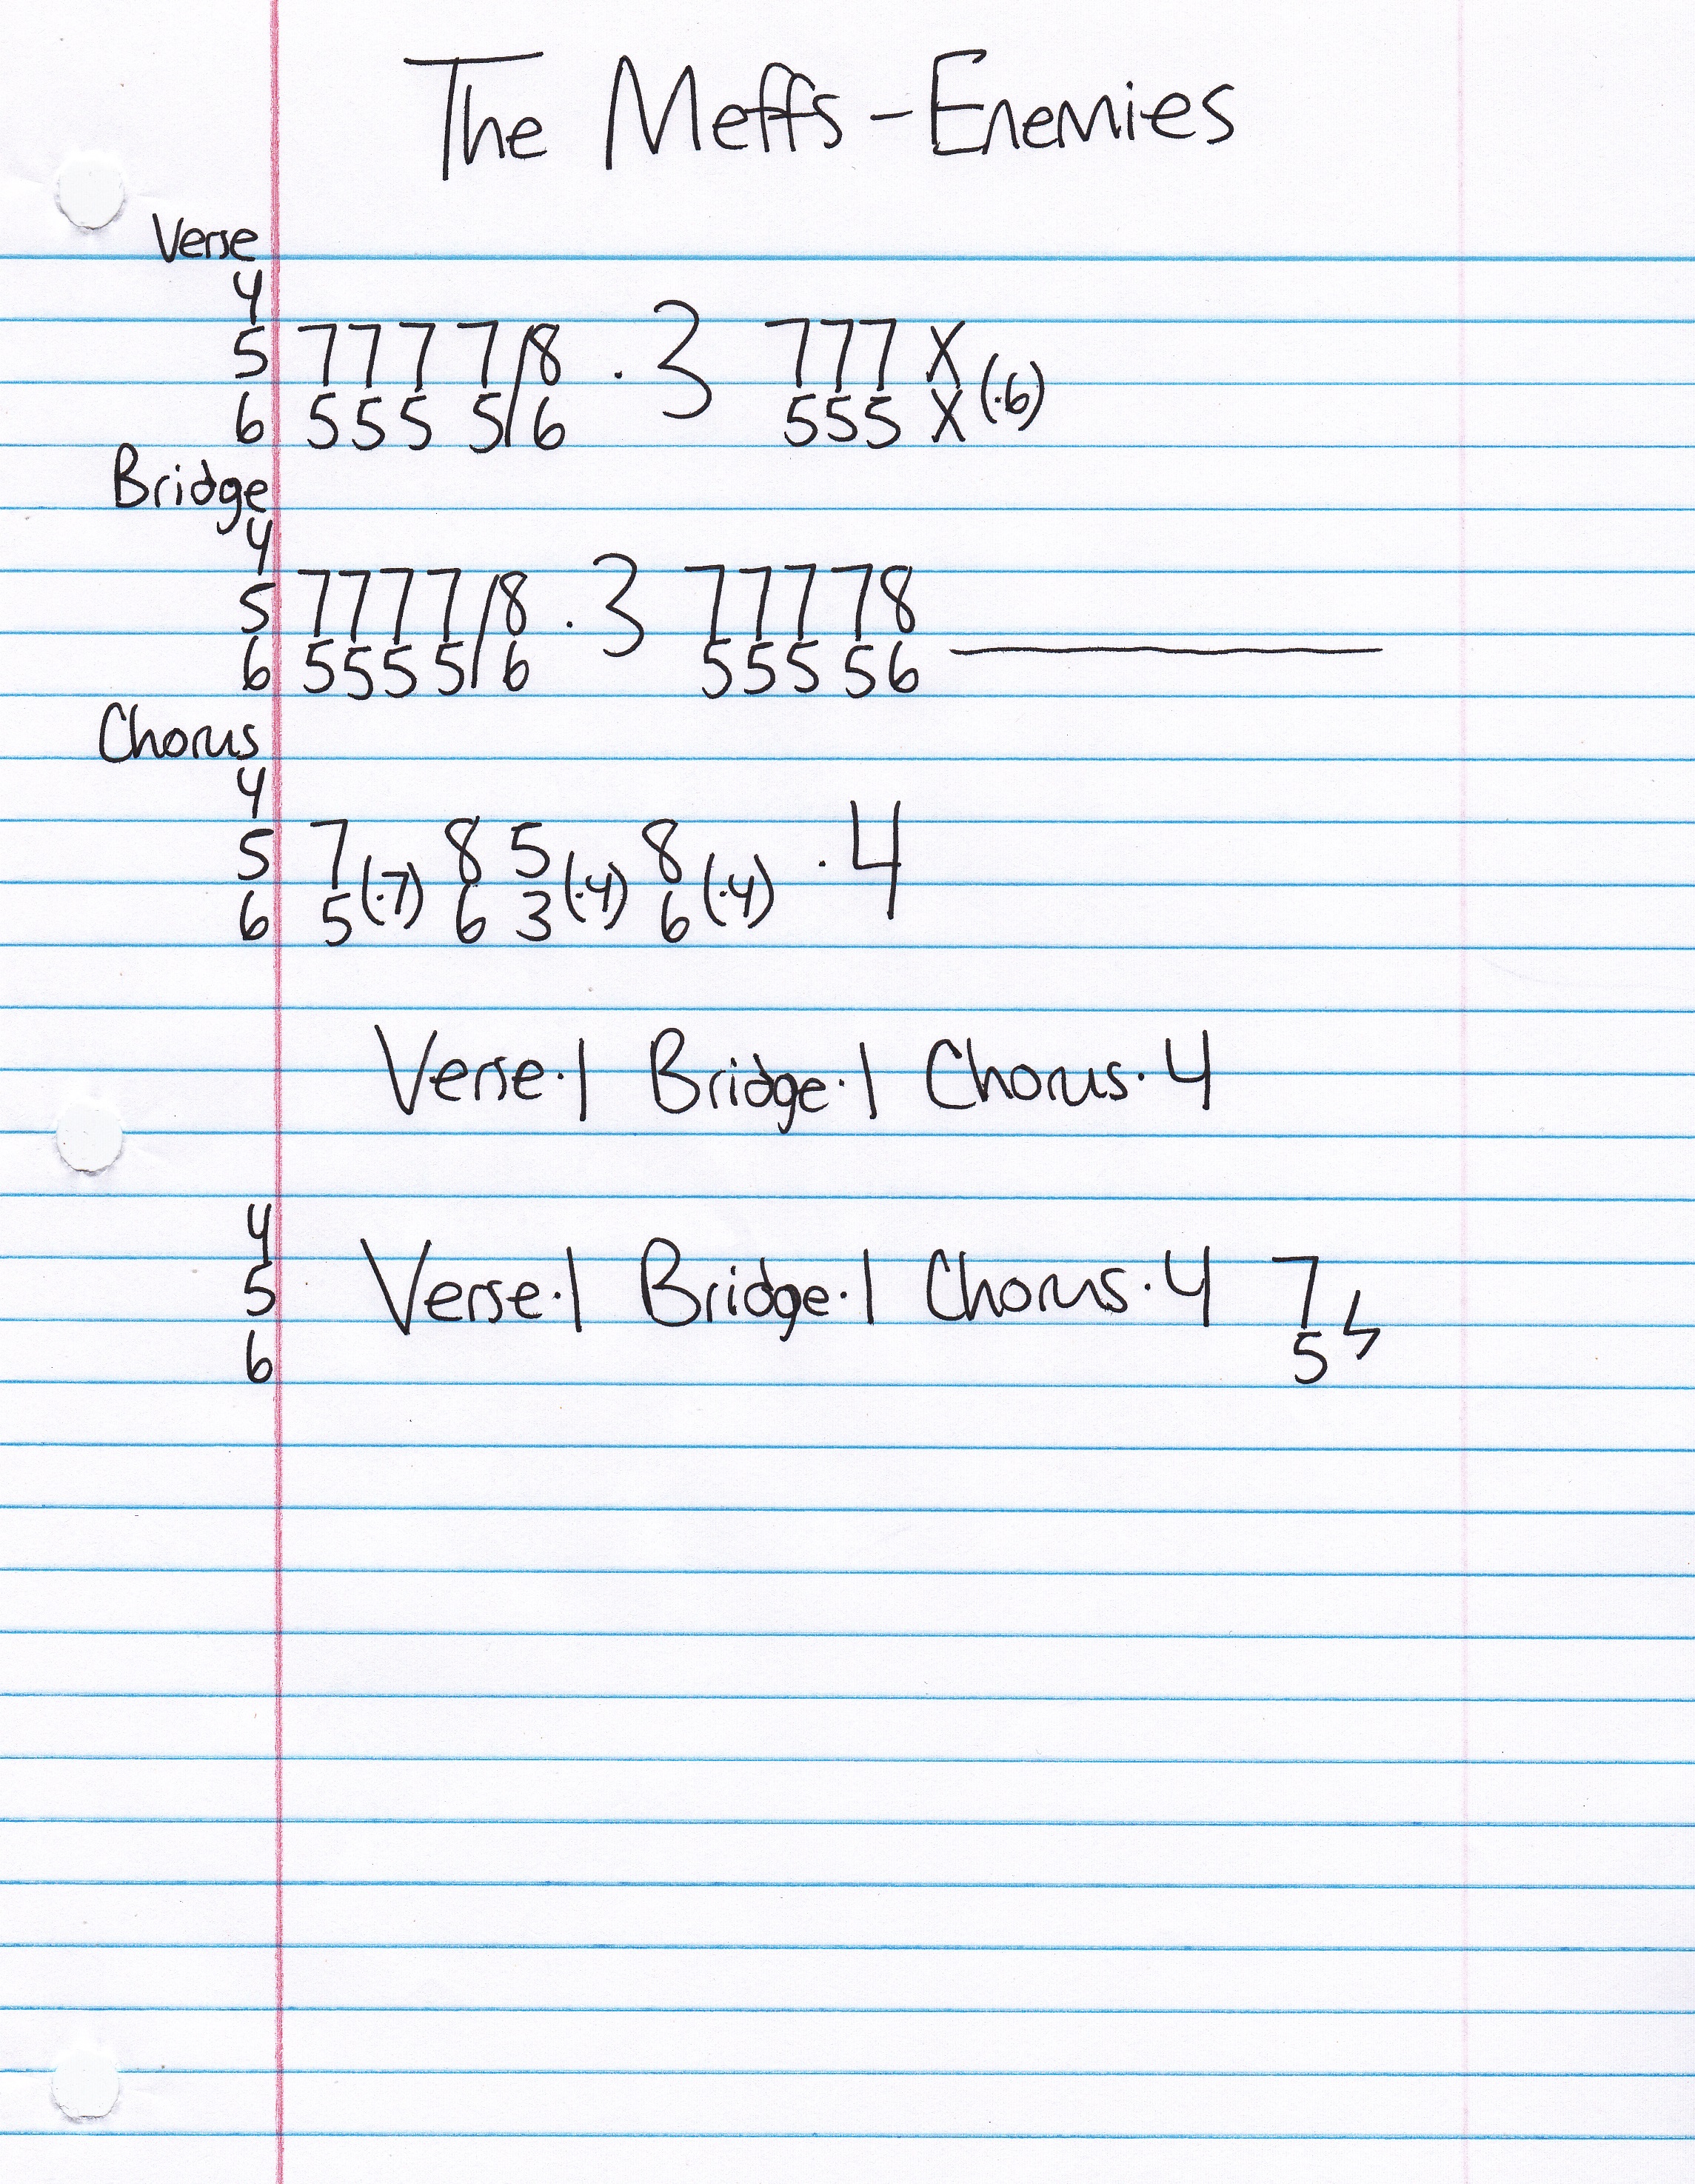 The Meffs - Enemies
Verse
4
5 7777/8 · 3 777X
6 5555/6 555X (·6)
Bridge
4
5 7777/8 · 3 77778
6 5555/6 55556 ________
Chorus
4
5 7 8 5 8 · 4
6 5(·7) 6 3(·4) 6(·4)
Verse·1 Bridge·1 Chorus·4
4
5 Verse·1 Bridge·1 Chorus·4 7
6 5